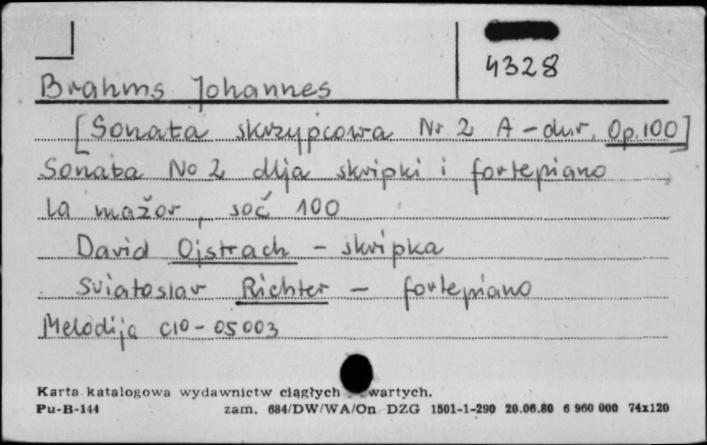 4328
Brahms Johannes
[Sonata skrzypcowa Nr 2 A-dur. Op.100]
Sonata No 2 dlja skripki i fortepiano
la mažor, soč 100
David Ojstrach - skripka
Sviatoslav Richter - fortepiano
Melodija C10-05003
Karta katalogowa wydawnictw ciągłych wartych.
Pu-B-144 zam. 684/DW/WA/On DZG 1501-1-290 20.06.80 6 960 000 74x120